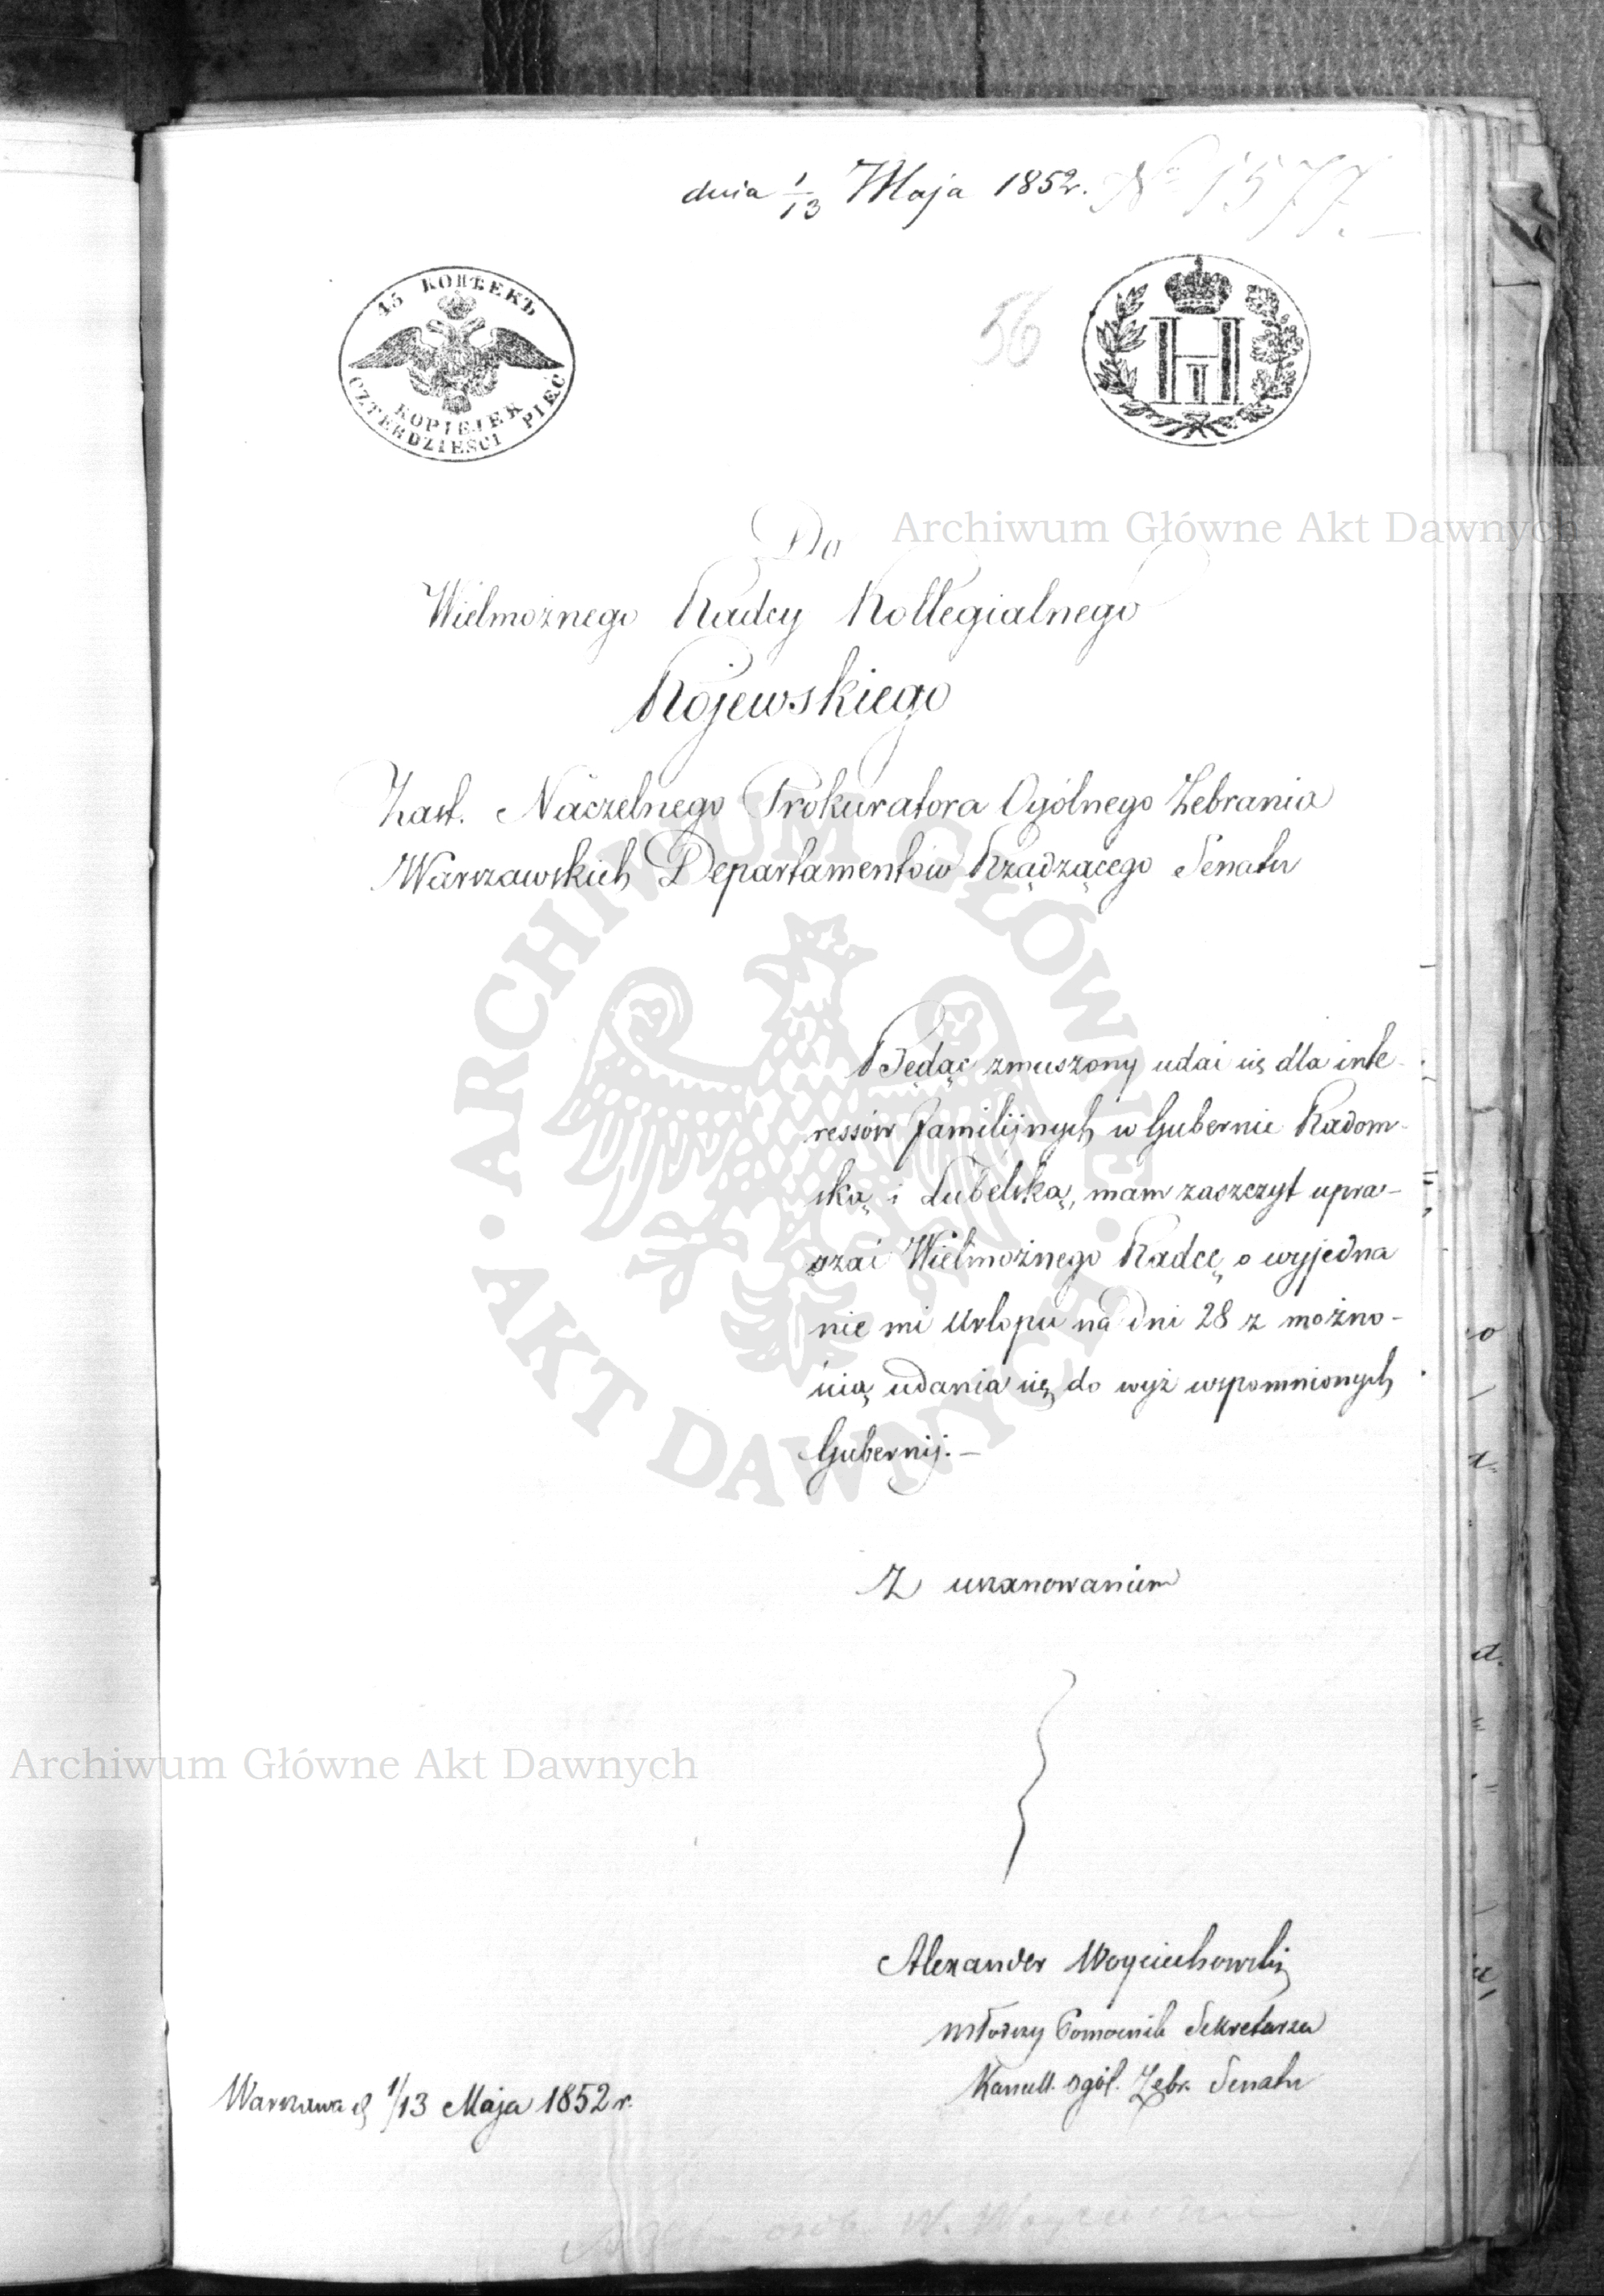 dnia 1/13 Maja 1852 r. No 1577.
56
45 КОПѢЕКЪ
KOPIEJEK
CZTERDZIEŚCI PIĘĆ
Н I
Do
Wielmożnego Radcy Kollegialnego
Kojewskiego
Zast. Naczelnego Prokuratora Ogólnego Zebrania
Warszawskich Departamentów Rządzącego Senatu
Będąc zmuszony udać się dla inte-
ressów familijnych w Gubernie Radom-
ską i Lubelską, mam zaszczyt upra-
szać Wielmożnego Radcę o wyjedna
nie mi Urlopu na dni 28 z możno-
ścią udania się do wyż wspomnionych
Gubernij.—
Z uszanowaniem
Alexander Woyciechowski
młodszy Pomocnik Sekretarza
Kancell. ogól. Zebr. Senatu
Warszawa d 1/13 Maja 1852 r.
Archiwum Główne Akt Dawnych
ARCHIWUM GŁÓWNE · AKT DAWNYCH ·
Archiwum Główne Akt Dawnych